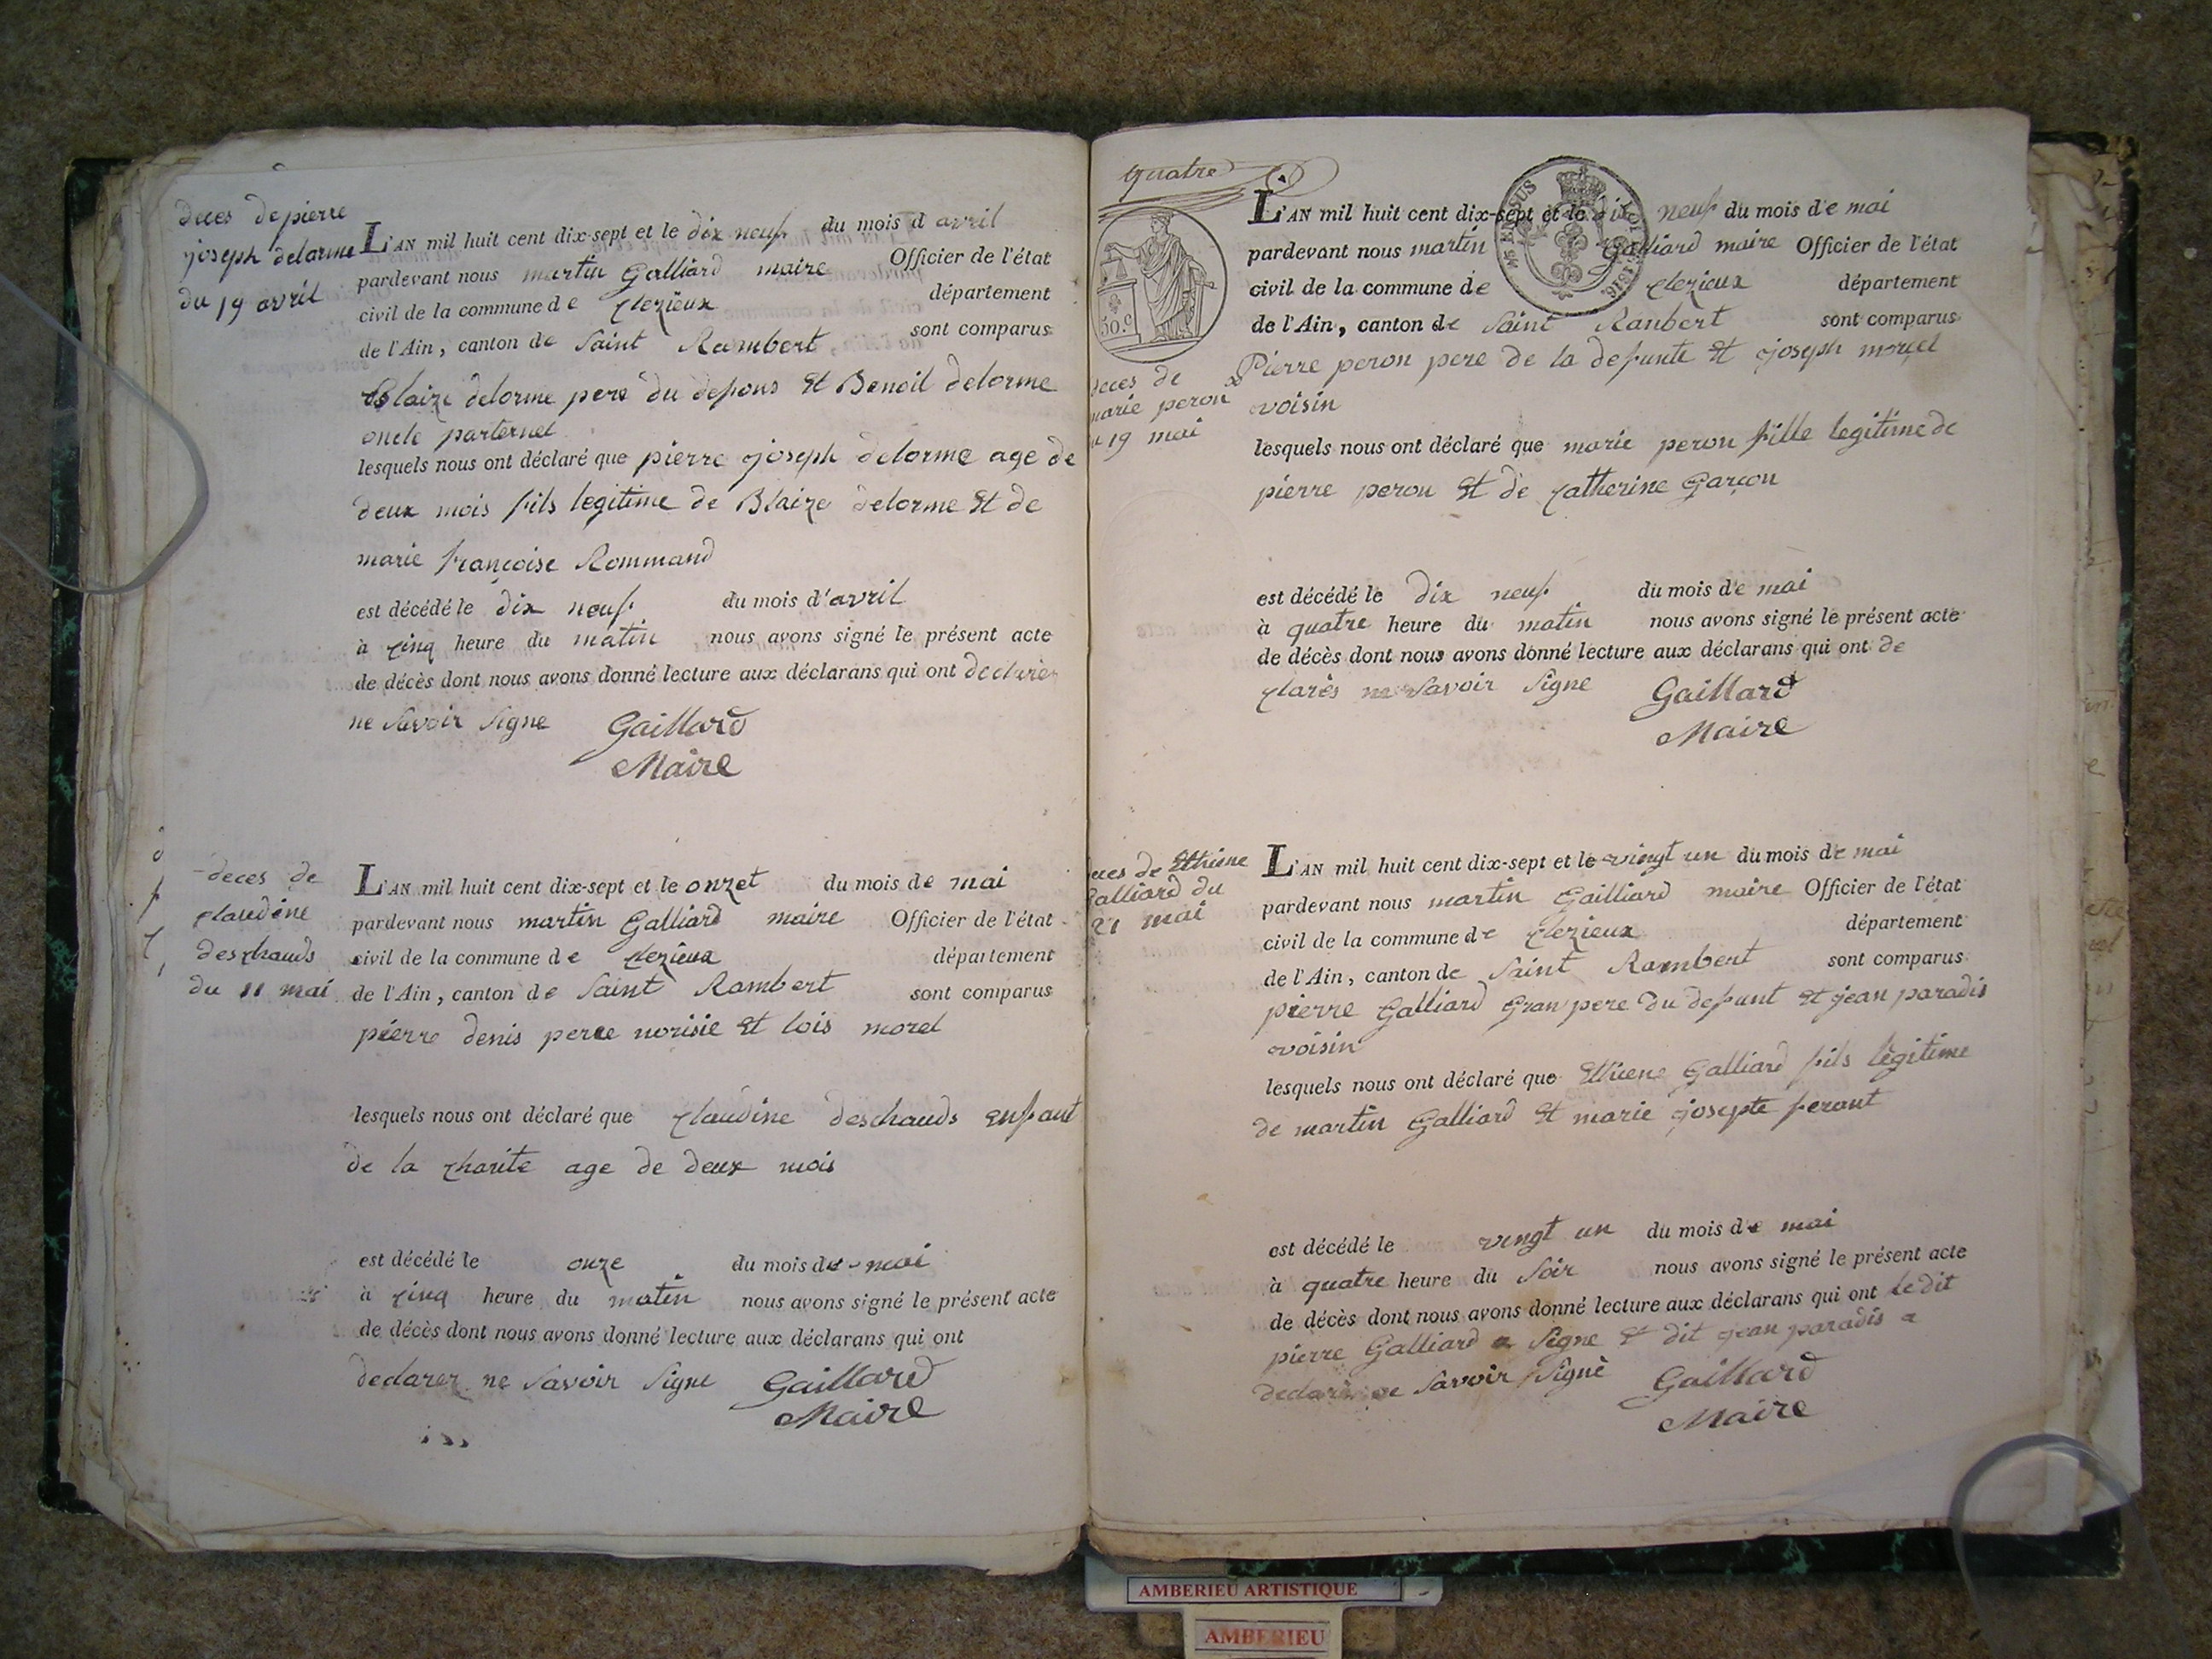 deces de pierre
joseph delorme
du 19 avril
L'AN mil huit cent dix-sept et le dix neuf du mois d avril
pardevant nous martin Galliard maire Officier de l'état
civil de la commune de Clezieux département
de l'Ain, canton de Saint Rambert sont comparus
Blaize delorme pere du defons et Benoit delorme
oncle parternel
lesquels nous ont déclaré que pierre joseph delorme age de
deux mois fils legitime de Blaize delorme et de
marie françoise Rommand
est décédé le dix neuf du mois d'avril
à cinq heure du matin nous avons signé le présent acte
de décès dont nous avons donné lecture aux déclarans qui ont declare
ne Savoir Signe Gaillard
Maire
deces de
claudine
deschauds
du 11 mai
L'AN mil huit cent dix-sept et le onzet du mois de mai
pardevant nous martin Galliard maire Officier de l'état
civil de la commune de Clezieux département
de l'Ain, canton de Saint Rambert sont comparus
pierre denis perre norisie et lois morel
lesquels nous ont déclaré que claudine deschauds enfant
de la charite age de deux mois
est décédé le onze du mois de mai
à cinq heure du matin nous avons signé le présent acte
de décès dont nous avons donné lecture aux déclarans qui ont
declarer ne Savoir Signe Gaillard
Maire
quatre
50.c
EN SUS
LOI 1816
deces de
marie peron
19 mai
L'AN mil huit cent dix-sept et le dix neuf du mois de mai
pardevant nous martin Galliard maire Officier de l'état
civil de la commune de Clezieux département
de l'Ain, canton de Saint Ranbert sont comparus
Pierre peron pere de la defunte et joseph morcel
voisin
lesquels nous ont déclaré que marie peron fille legitime de
pierre peron et de catherine Garçon
est décédé le dix neuf du mois de mai
à quatre heure du matin nous avons signé le présent acte
de décès dont nous avons donné lecture aux déclarans qui ont de
clarès ne Savoir Signe Gaillard
Maire
deces de Ethiene
Galliard du
21 mai
L'AN mil huit cent dix-sept et le vingt un du mois de mai
pardevant nous martin Gailliard maire Officier de l'état
civil de la commune de Clezieux département
de l'Ain, canton de Saint Rambert sont comparus
pierre Galliard Gran pere du defunt et jean paradis
voisin
lesquels nous ont déclaré que Ethiene Galliard fils lègitime
de martin Galliard et marie josepte ferant
est décédé le vingt un du mois de mai
à quatre heure du Soir nous avons signé le présent acte
de décès dont nous avons donné lecture aux déclarans qui ont le dit
pierre Galliard a Signe et dit jean paradis a
declarè ne Savoir Signè Gaillard
Maire
AMBERIEU ARTISTIQUE
AMBERIEU